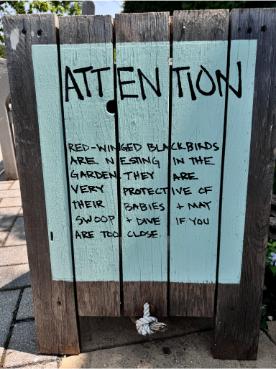 ATTENTION
RED-WINGED BLACKBIRDS
ARE NESTING IN THE
GARDEN. THEY ARE
VERY PROTECTIVE OF
THEIR BABIES + MAY
SWOOP + DIVE IF YOU
ARE TOO CLOSE